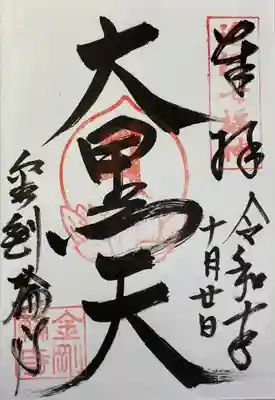 奉拝
令和六年
十月廿日
大黒天
金剛福寺
金剛
福寺